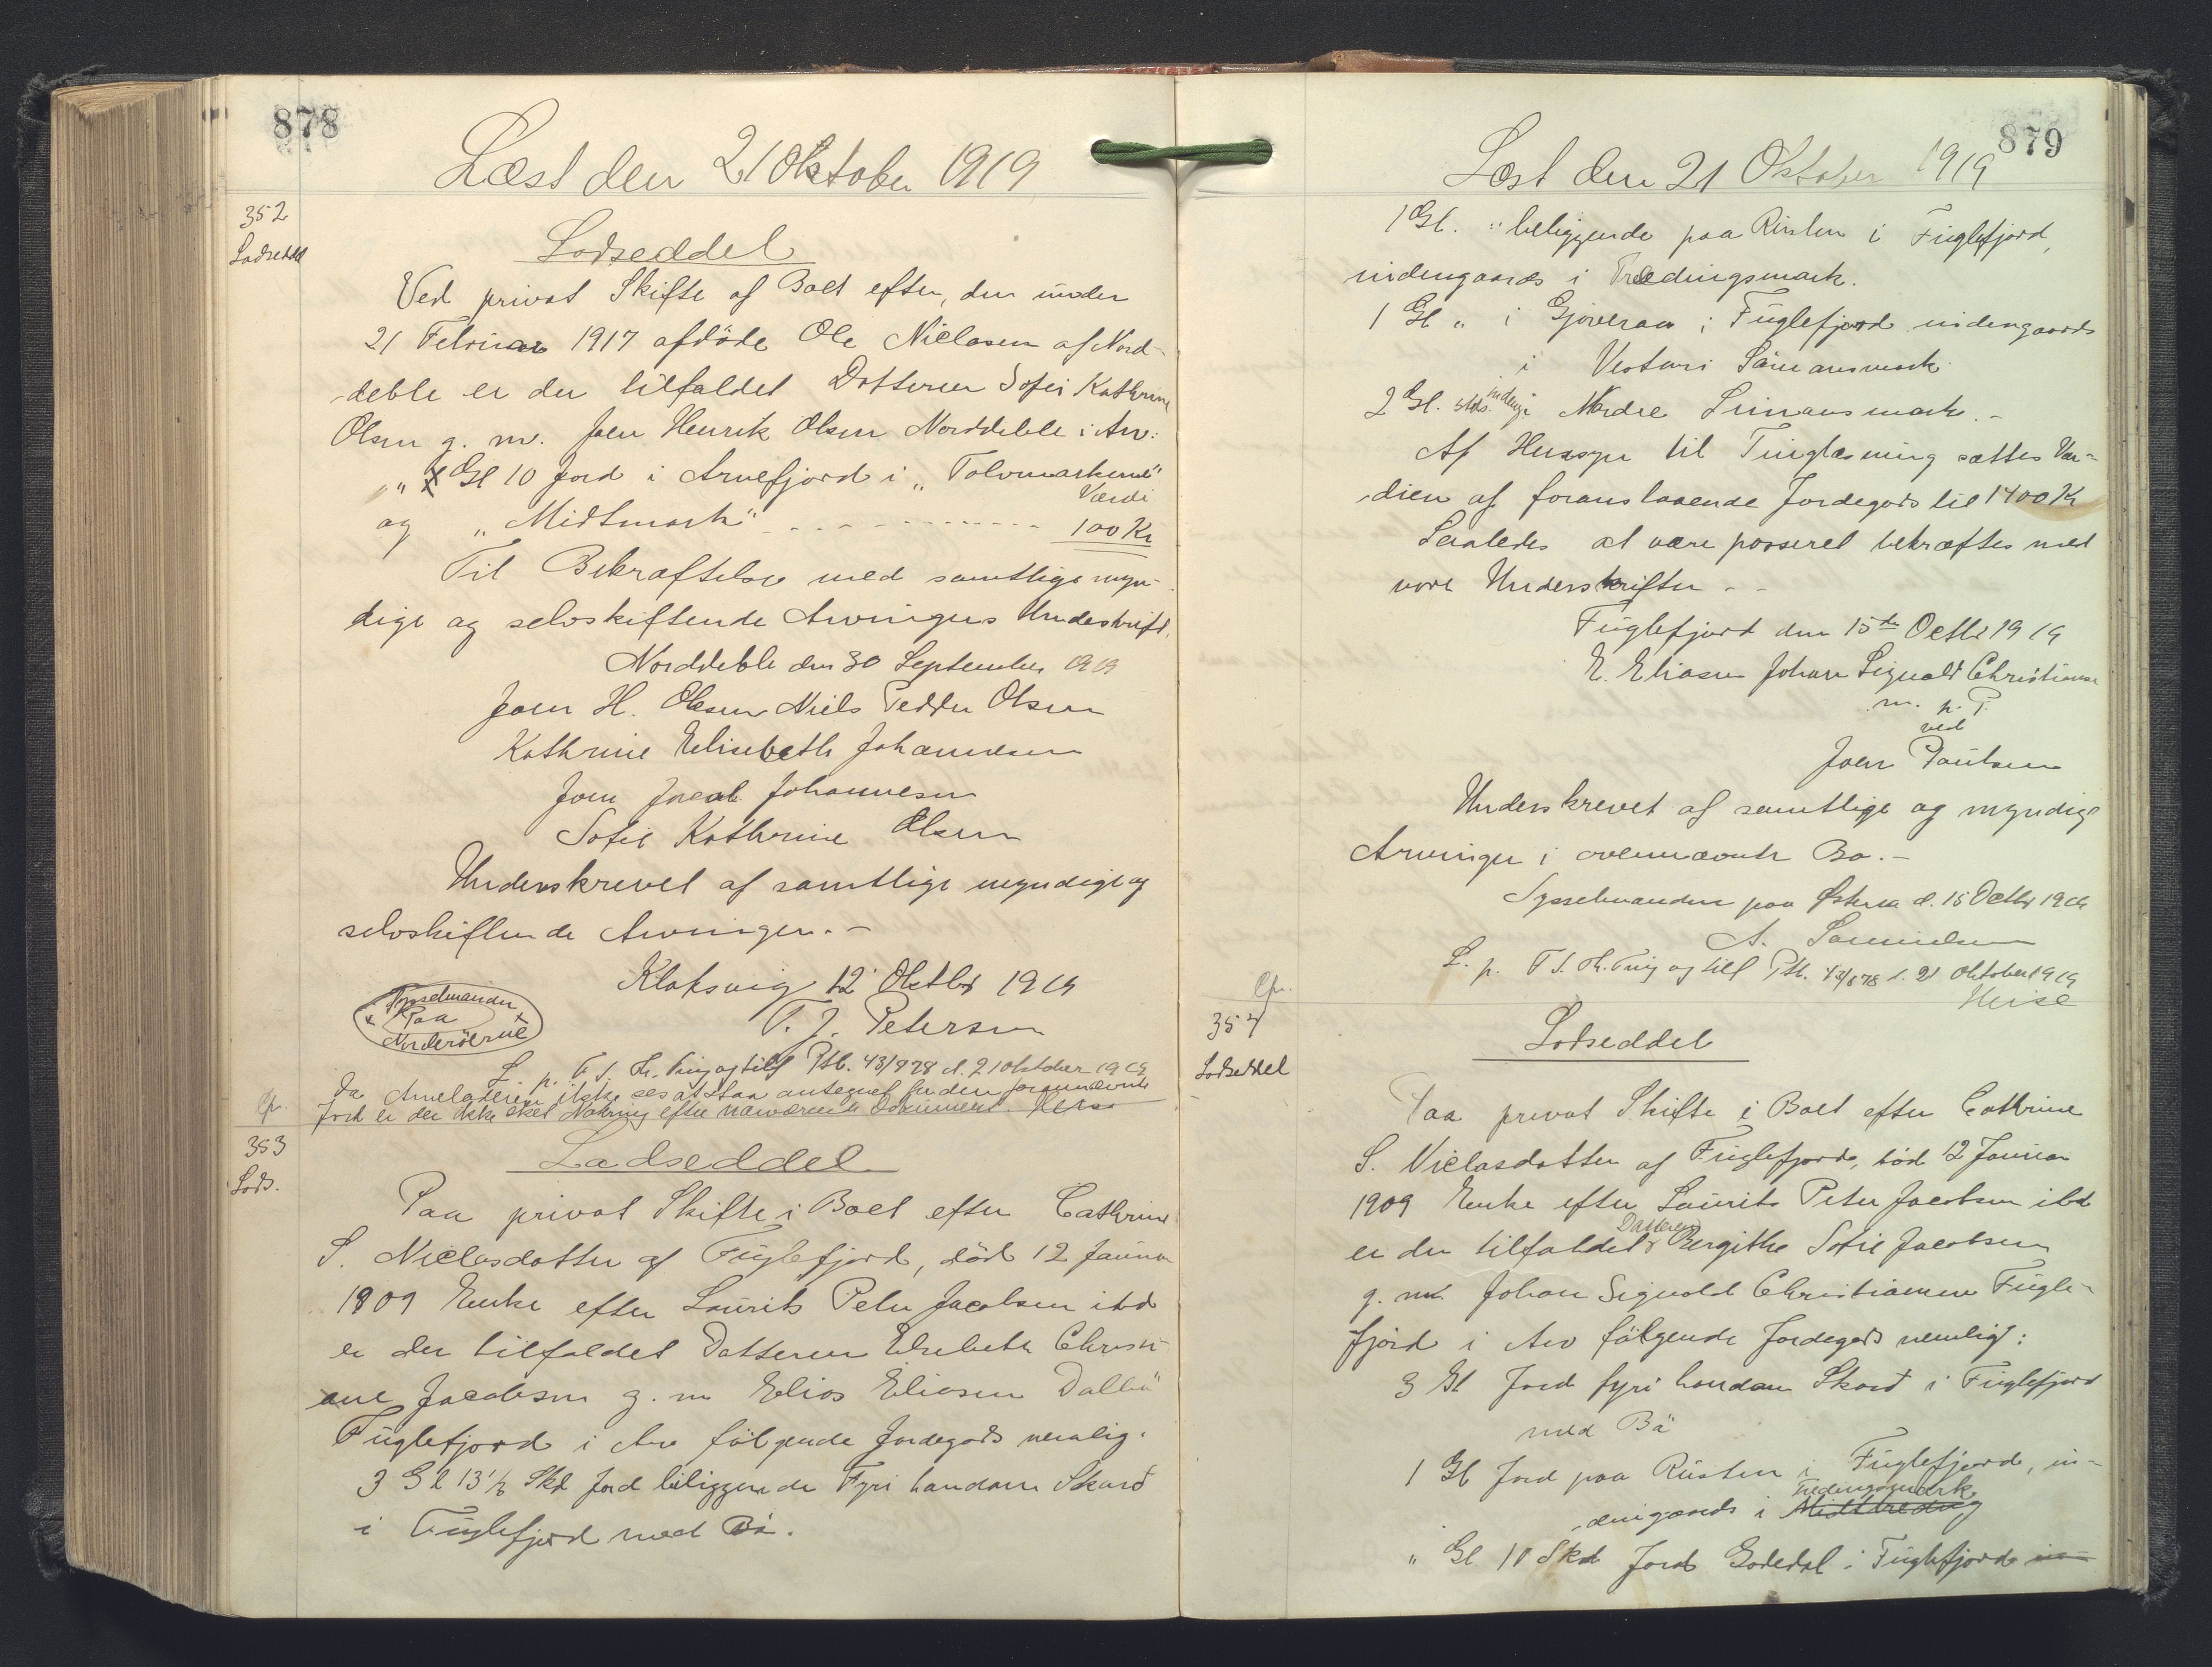 878
Læst den 21 Oktober 1919
352
Lodseddel
Lodseddel
Ved privat Skifte af Boet efter, den under
21 Februar 1917 afdöde Ole Niclasen af Nord-
deble er der tilfaldet Datteren Sofie Kathrine
Olsen g. m. Joen Henrik Olsen Norddeble i Arv:
" Gl 10 Jord i Arnefjord i "Tolvmarkerne"
Værdi
og "Midtmark" - - - - - - - - - 100 Kr
Til Bekræftelse med samtlige myn-
dige og selvskiftende Arvingers Underskrift.
Norddeble den 30 September 1919
Joen H. Olsen Niels Pedder Olsen
Kathrine Elisebeth Johannesen
Joen Jacob Johannesen
Sofie Kathrine Olsen
Underskrevet af samtlige myndige og
selvskiftende Arvinger. -
Klaksvig 12 Oktbr 1919
Sysselmanden
paa
Norderöerne
T. J. Petersen
L. p. F. J. Th. Ting og tilf Ptb. 43/878 d. 21 Oktober 1919
Da Arveladeren ikke ses at staa antegnet for den forannævnte
Jord er der ikke sket Notering efter nærværende Dokument. Heise
353
Lods.
Lodseddel
Paa privat Skifte i Boet efter Cathrine
S. Niclasdatter af Fuglefjord, död 12 Januar
1909 Enke efter Laurits Peter Jacobsen ibd
er der tilfaldet Datteren Elsebeth Christi-
ane Jacobsen g. m Elias Eliasen Dalbö
Fuglefjord i Arv fölgende Jordegods nemlig.
3 Gl 13 1/3 Skd Jord beliggende Fyri handan Skard
i Fuglefjord med Bö.
879
Læst den 21 Oktober 1919
1 Gl. " beliggende paa Rusten i Fuglefjord,
indengaards i Trædingsmark.
1 Gl " i Gjoveraa i Fuglefjord indengaards
i Vestari Säimansmark.
2 Gl. Skd. indeng. i Nordre Sumansmark. -
Af Hensyn til Tinglæsning sættes Vær-
dien af foranstaaende Jordegods til 1400 Kr
Saaledes at være passeret bekræftes med
vore Underskrifter - -
Fuglefjord den 15de Octbr 1919
E. Eliasen Johan Sigvald Christiansen
m. p. P.
ved
Joen Poulsen
Underskrevet af samtlige og myndige
Arvinger i ovennævnte Bo. -
Sysselmanden paa Österø d. 15 Octbr 1919
A. Samuelsen
L. p. F. J. Th. Ting og tilf Ptb. 43/878 d. 21 Oktober 1919
Heise
354
Lodseddel
Lodseddel
Paa privat Skifte i Boet efter Cathrine
S. Niclasdatter af Fuglefjord, död 12 Januar
1909 Enke efter Laurits Peter Jacobsen ibd
er der tilfaldet Datteren Bergithe Sofie Jacobsen
g. m. Johan Sigvald Christiansen Fugle-
fjord i Arv fölgende Jordegods nemlig:
3 Gl Jord fyri handan Skard i Fuglefjord
med Bö
1 Gl Jord paa Rusten i Fuglefjord, in-
dengaards i Midttreding Trædingsmark
" Gl 10 Skd Jord Godedal i Fuglefjord in-